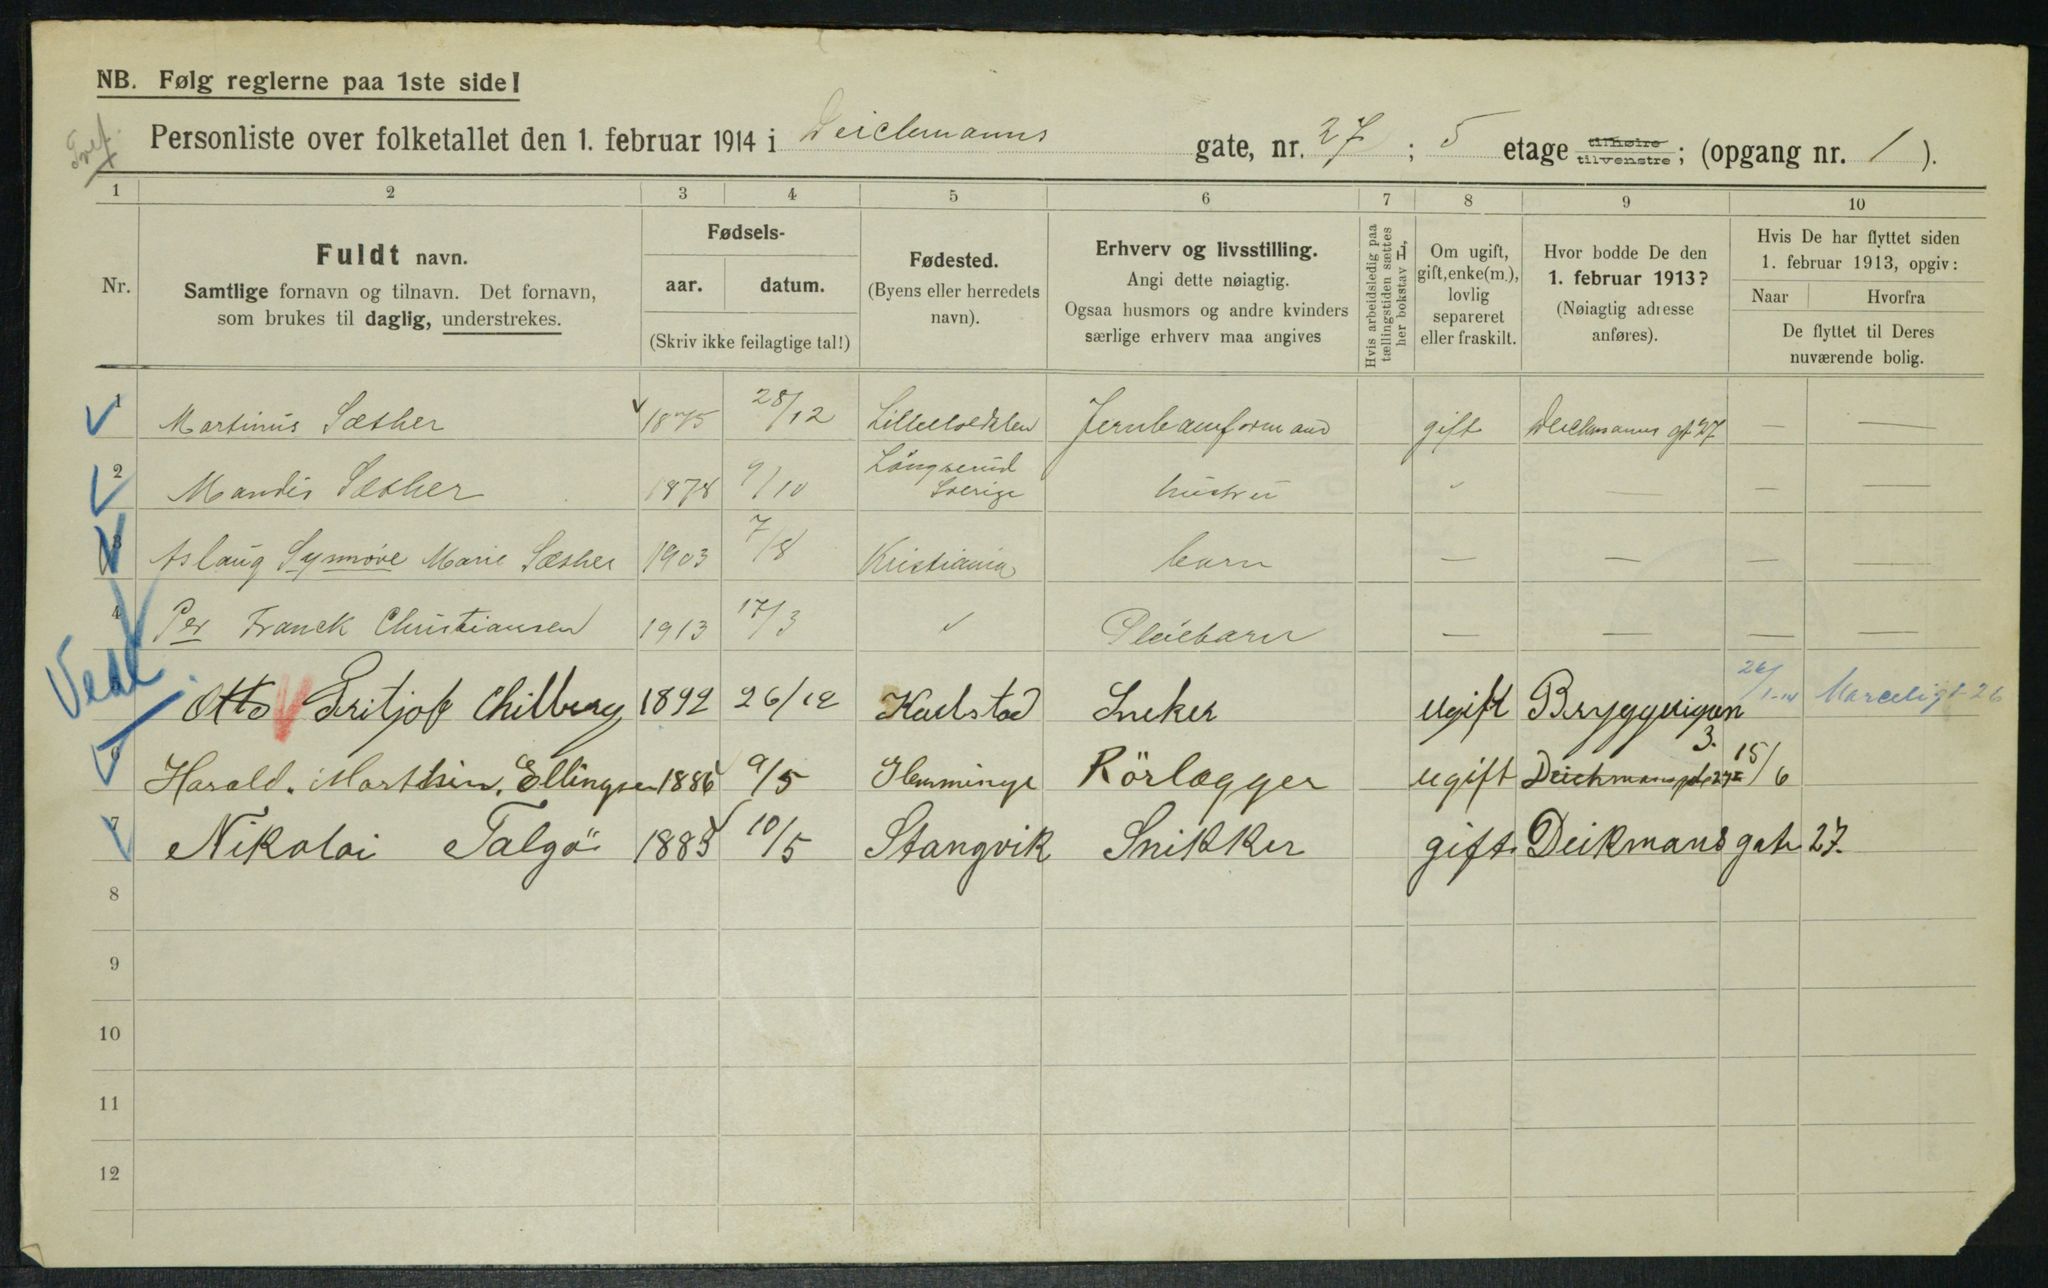 NB. Følg reglerne paa 1ste side!
Personliste over folketallet den 1. februar 1914 i Deichmanns gate, nr. 27 ; 5 etage tilhøire tilvenstre ; (opgang nr. 1 ).
1 2 3 4 5 6 7 8 9 10
Nr.
Fuldt navn.
Samtlige fornavn og tilnavn. Det fornavn,
som brukes til daglig, understrekes.
Fødsels-
aar. datum.
(Skriv ikke feilagtige tal!)
Fødested.
(Byens eller herredets
navn).
Erhverv og livsstilling.
Angi dette nøiagtig.
Ogsaa husmors og andre kvinders
særlige erhverv maa angives
Hvis arbeidsledig paa
tællingstiden sættes
her bokstav L,
Om ugift,
gift, enke(m.),
lovlig
separeret
eller fraskilt.
Hvor bodde De den
1. februar 1913?
(Nøiagtig adresse
anføres).
Hvis De har flyttet siden
1. februar 1913, opgiv:
Naar Hvorfra
De flyttet til Deres
nuværende bolig.
1 Martinus Sæther 1875 28/12 Jernbaneformand gift Deichmanns gt 27 — —
2 Mandis Sæther 1878 9/10 Långserud Sverige hustru " — — —
3 Aslaug Synnøve Marie Sæther 1903 7/8 Kristiania barn — — — —
4 Per Franck Christiansen 1913 17/3 " Pleiebarn — — — —
5 Otto Fritjof Chilberg 1892 26/12 Karlstad Sneker ugift Bryggerigaten 3. 26/1-14 Marceligt 26
6 Harald. Marthin. Ellingsen 1886 9/5 Hemminge Rörlægger ugift Deichmansgt 27 15/6
7 Nikolai Talgö 1885 10/5 Stangvik Snikker gift Deikmans gate 27.
8
9
10
11
12